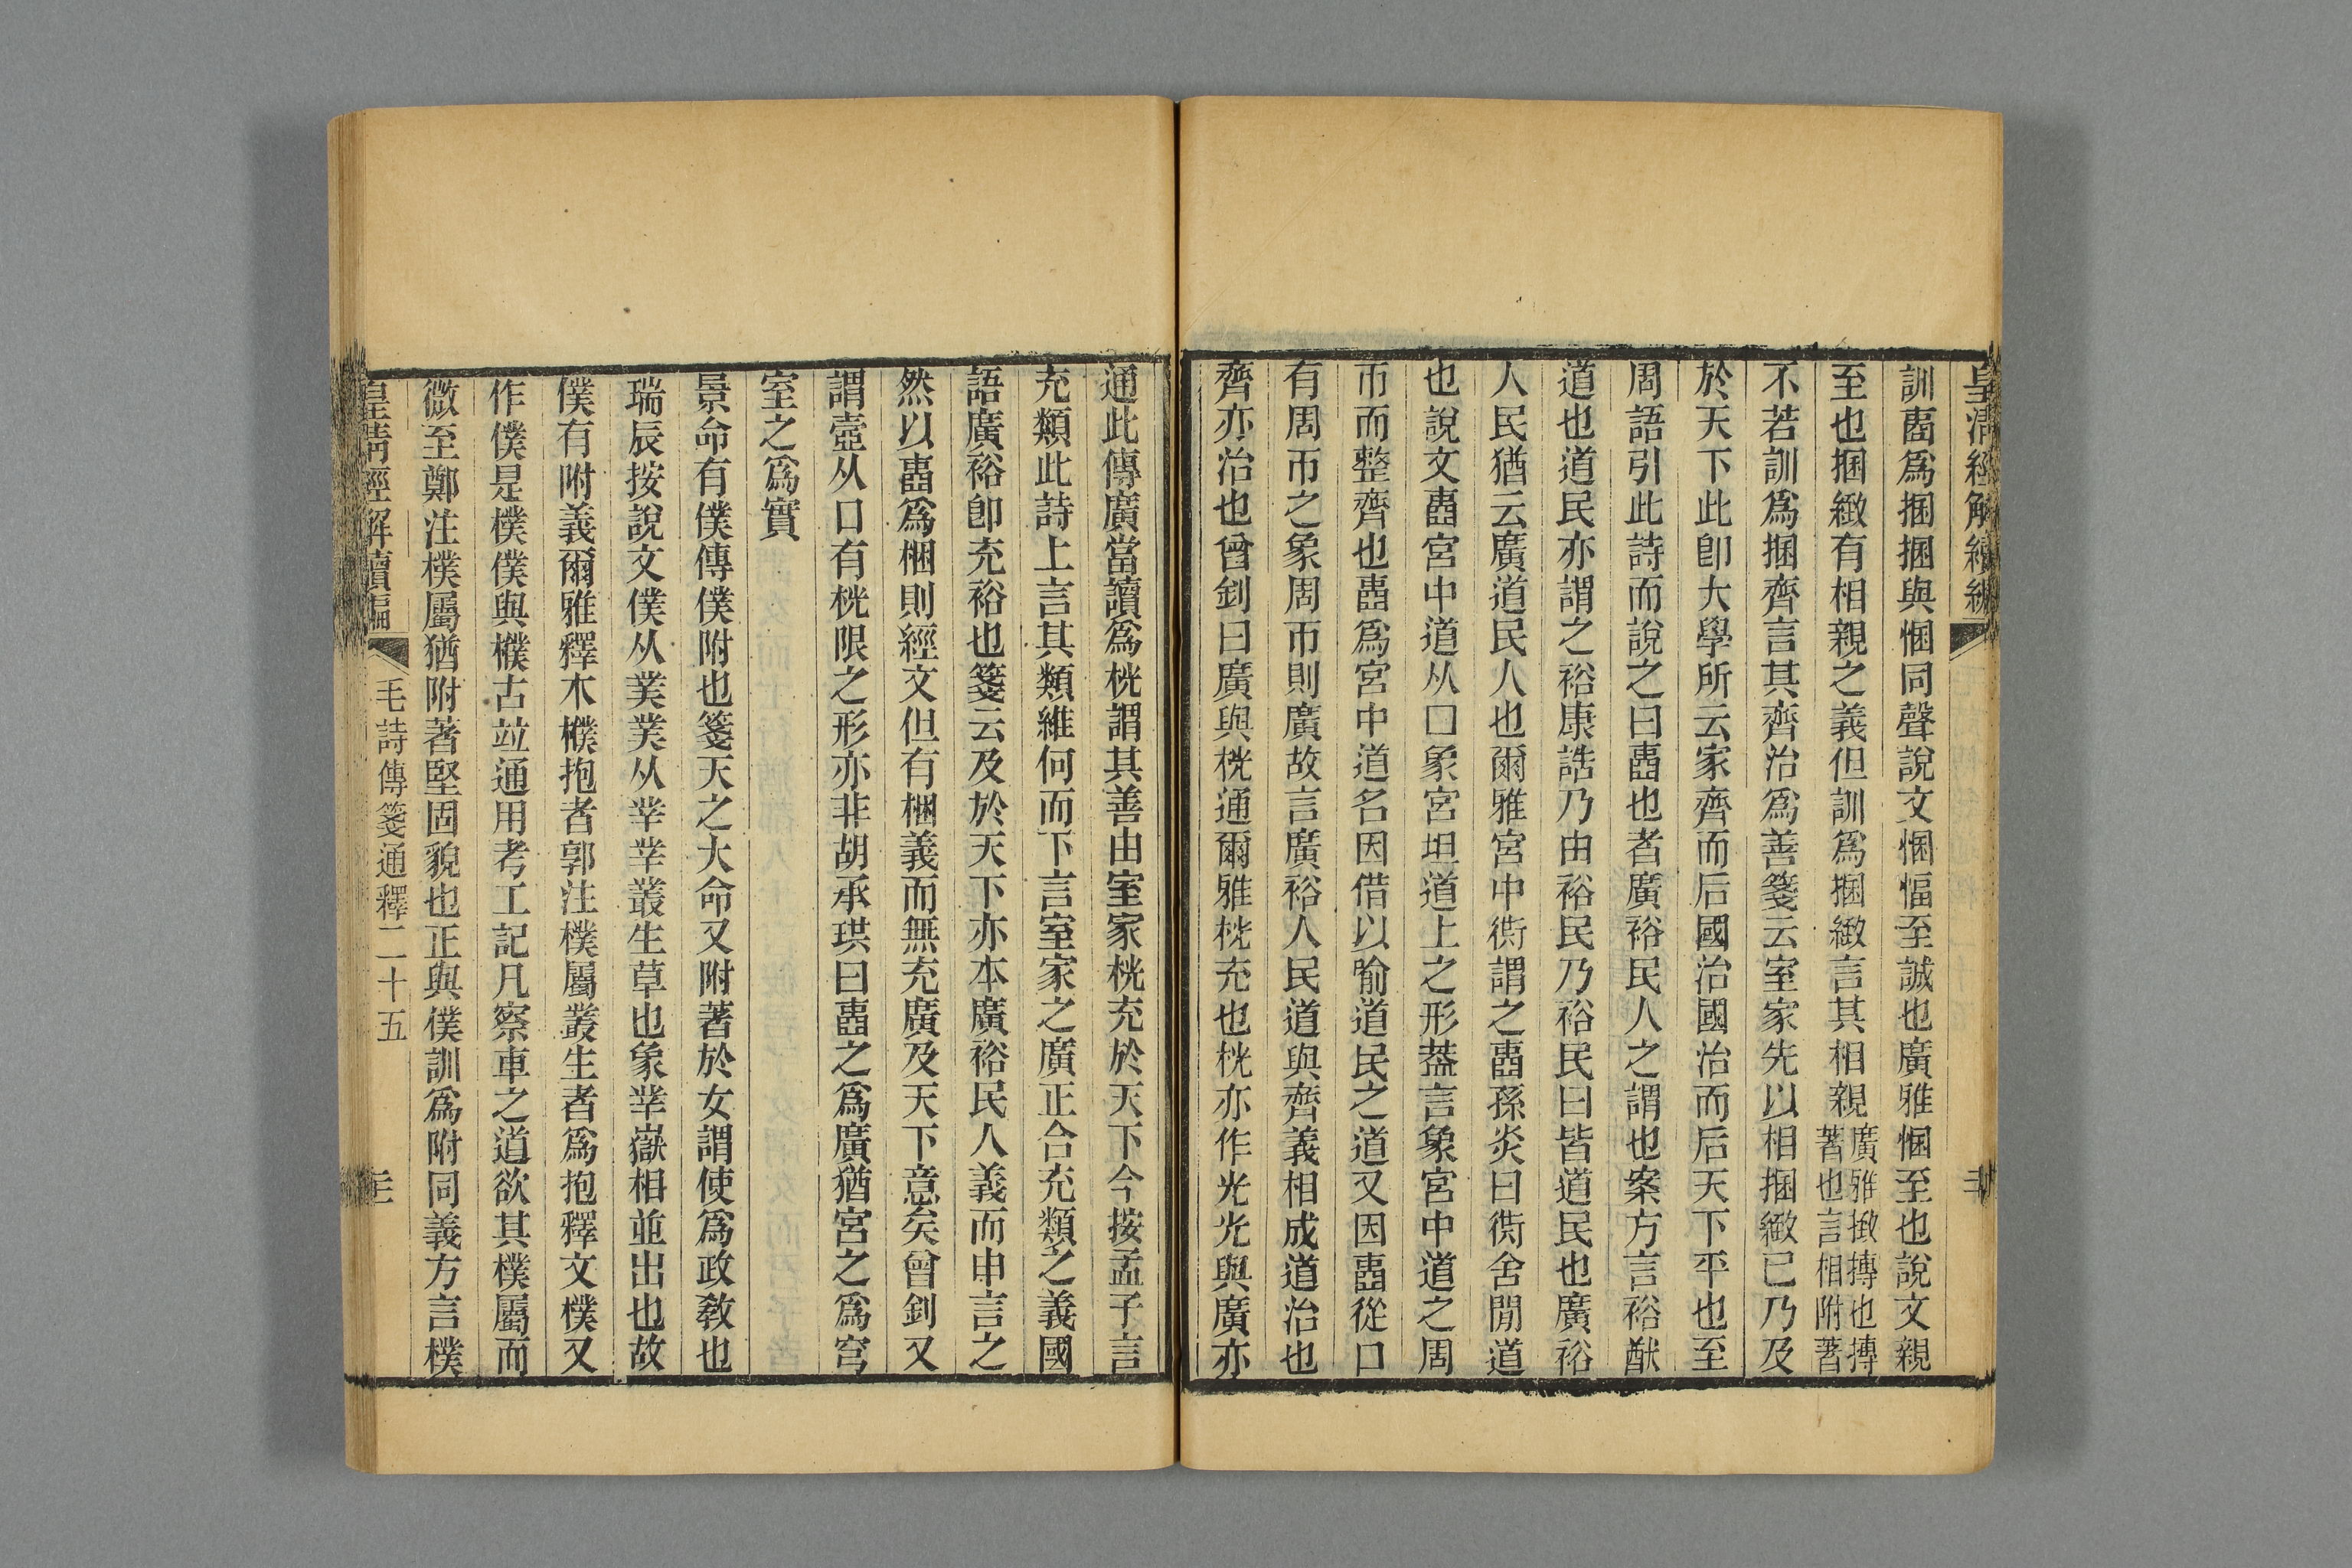 皇清經解續編
訓壼爲捆捆與悃同聲說文悃愊至誠也廣雅悃至也說文親
至也捆緻有相親之義但訓爲捆緻言其相親廣雅撖摶也摶
著也言相附著
不若訓爲捆齊言其齊治爲善箋云室家先以相捆緻已乃及
於天下此卽大學所云家齊而后國治國治而后天下平也至
周語引此詩而說之曰壼也者廣裕民人之謂也案方言裕猷
道也道民亦謂之裕康誥乃由裕民乃裕民曰皆道民也廣裕
人民猶云廣道民人也爾雅宮中衖謂之壼孫炎曰衖舍閒道
也說文壼宮中道从囗象宮垣道上之形葢言象宮中道之周
帀而整齊也壼爲宮中道名因借以喻道民之道又因壼從囗
有周帀之象周帀則廣故言廣裕人民道與齊義相成道治也
齊亦治也曾釗曰廣與桄通爾雅桄充也桄亦作光光與廣亦
通此傳廣當讀爲桄謂其善由室家桄充於天下今按孟子言
充類此詩上言其類維何而下言室家之廣正合充類之義國
語廣裕卽充裕也箋云及於天下亦本廣裕民人義而申言之
然以壼爲梱則經文但有梱義而無充廣及天下意矣曾釗又
謂壼从囗有桄限之形亦非胡承珙曰壼之爲廣猶宮之爲穹
室之爲實
景命有僕傳僕附也箋天之大命又附著於女謂使爲政敎也
瑞辰按說文僕从菐菐从丵丵叢生草也象丵嶽相並出也故
僕有附義爾雅釋木樸枹者郭注樸屬叢生者爲枹釋文樸又
作僕是樸僕與樸古竝通用考工記凡察車之道欲其樸屬而
微至鄭注樸屬猶附著堅固貌也正與僕訓爲附同義方言樸
皇淸經解續編
毛詩傳箋通釋二十五